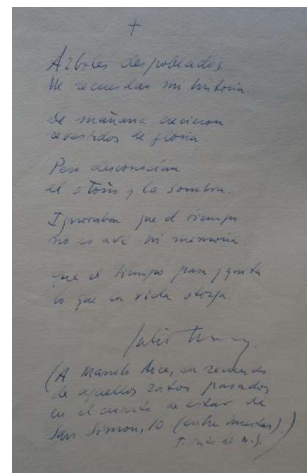 Árboles despoblados
Me recuerdan mi historia.
De mañana crecieron
revestidos de gloria
Pero desconocían
el otoño y la sombra.
Ignoraban que el tiempo
no es ave ni memoria
que el tiempo pasa y quita
lo que en vida otorga.
Julio
(A Manolo Arce, en recuerdo
de aquellos ratos pasados
en el cuarto de estar de
San Simón, 10 (entre